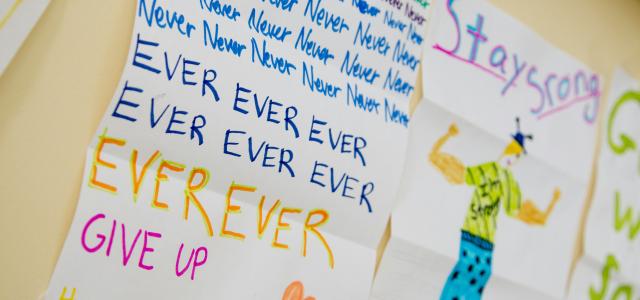 Never Never Never Never
Never Never Never Never Never
Never Never Never Never Never Never
EVER EVER EVER
EVER EVER EVER
EVER EVER
GIVE UP
Staysrong
I'm
Strong